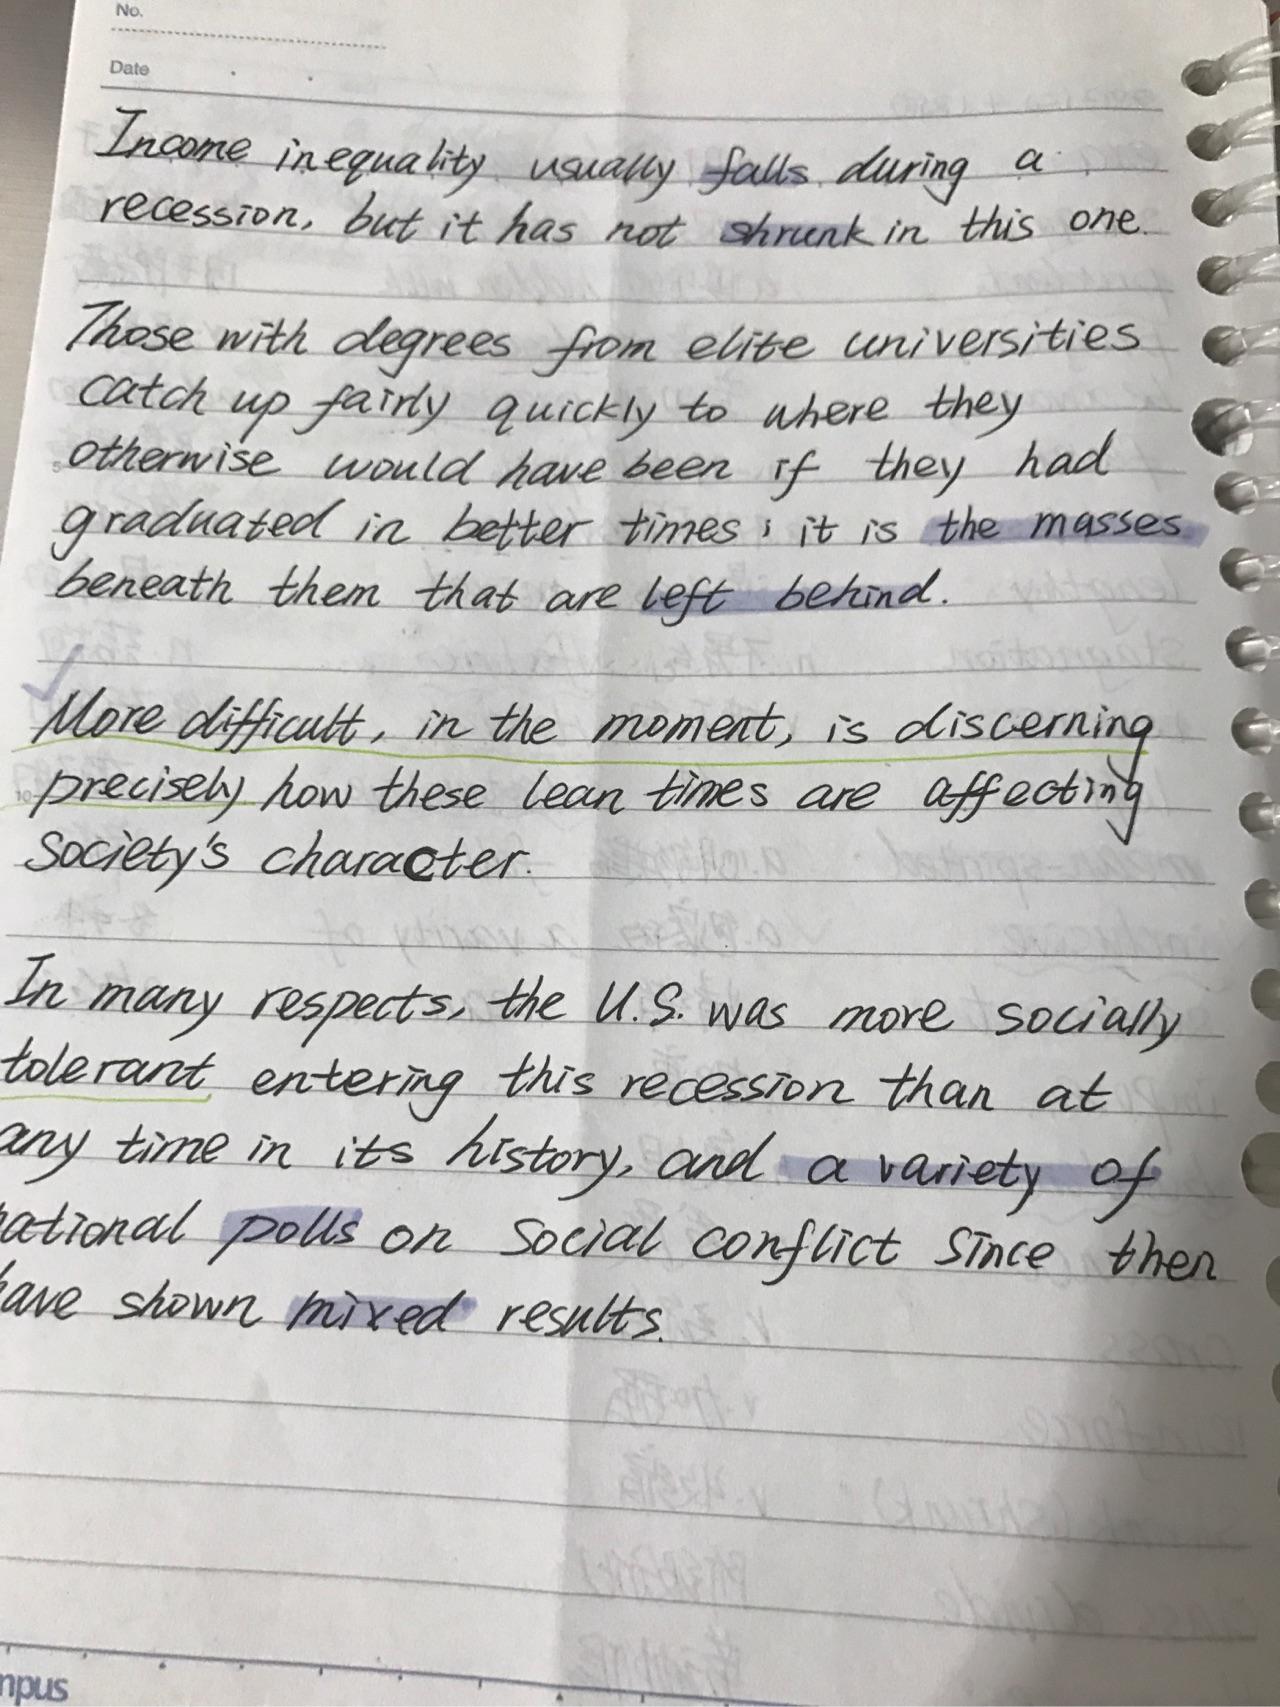 No.
Date
Income inequality usually falls during a
recession, but it has not shrunk in this one.
Those with degrees from elite universities
catch up fairly quickly to where they
otherwise would have been if they had
graduated in better times; it is the masses
beneath them that are left behind.
More difficult, in the moment, is discerning
precisely how these lean times are affecting
society's character.
In many respects, the U.S. was more socially
tolerant entering this recession than at
any time in its history, and a variety of
national polls on social conflict since then
have shown mixed results.
mpus